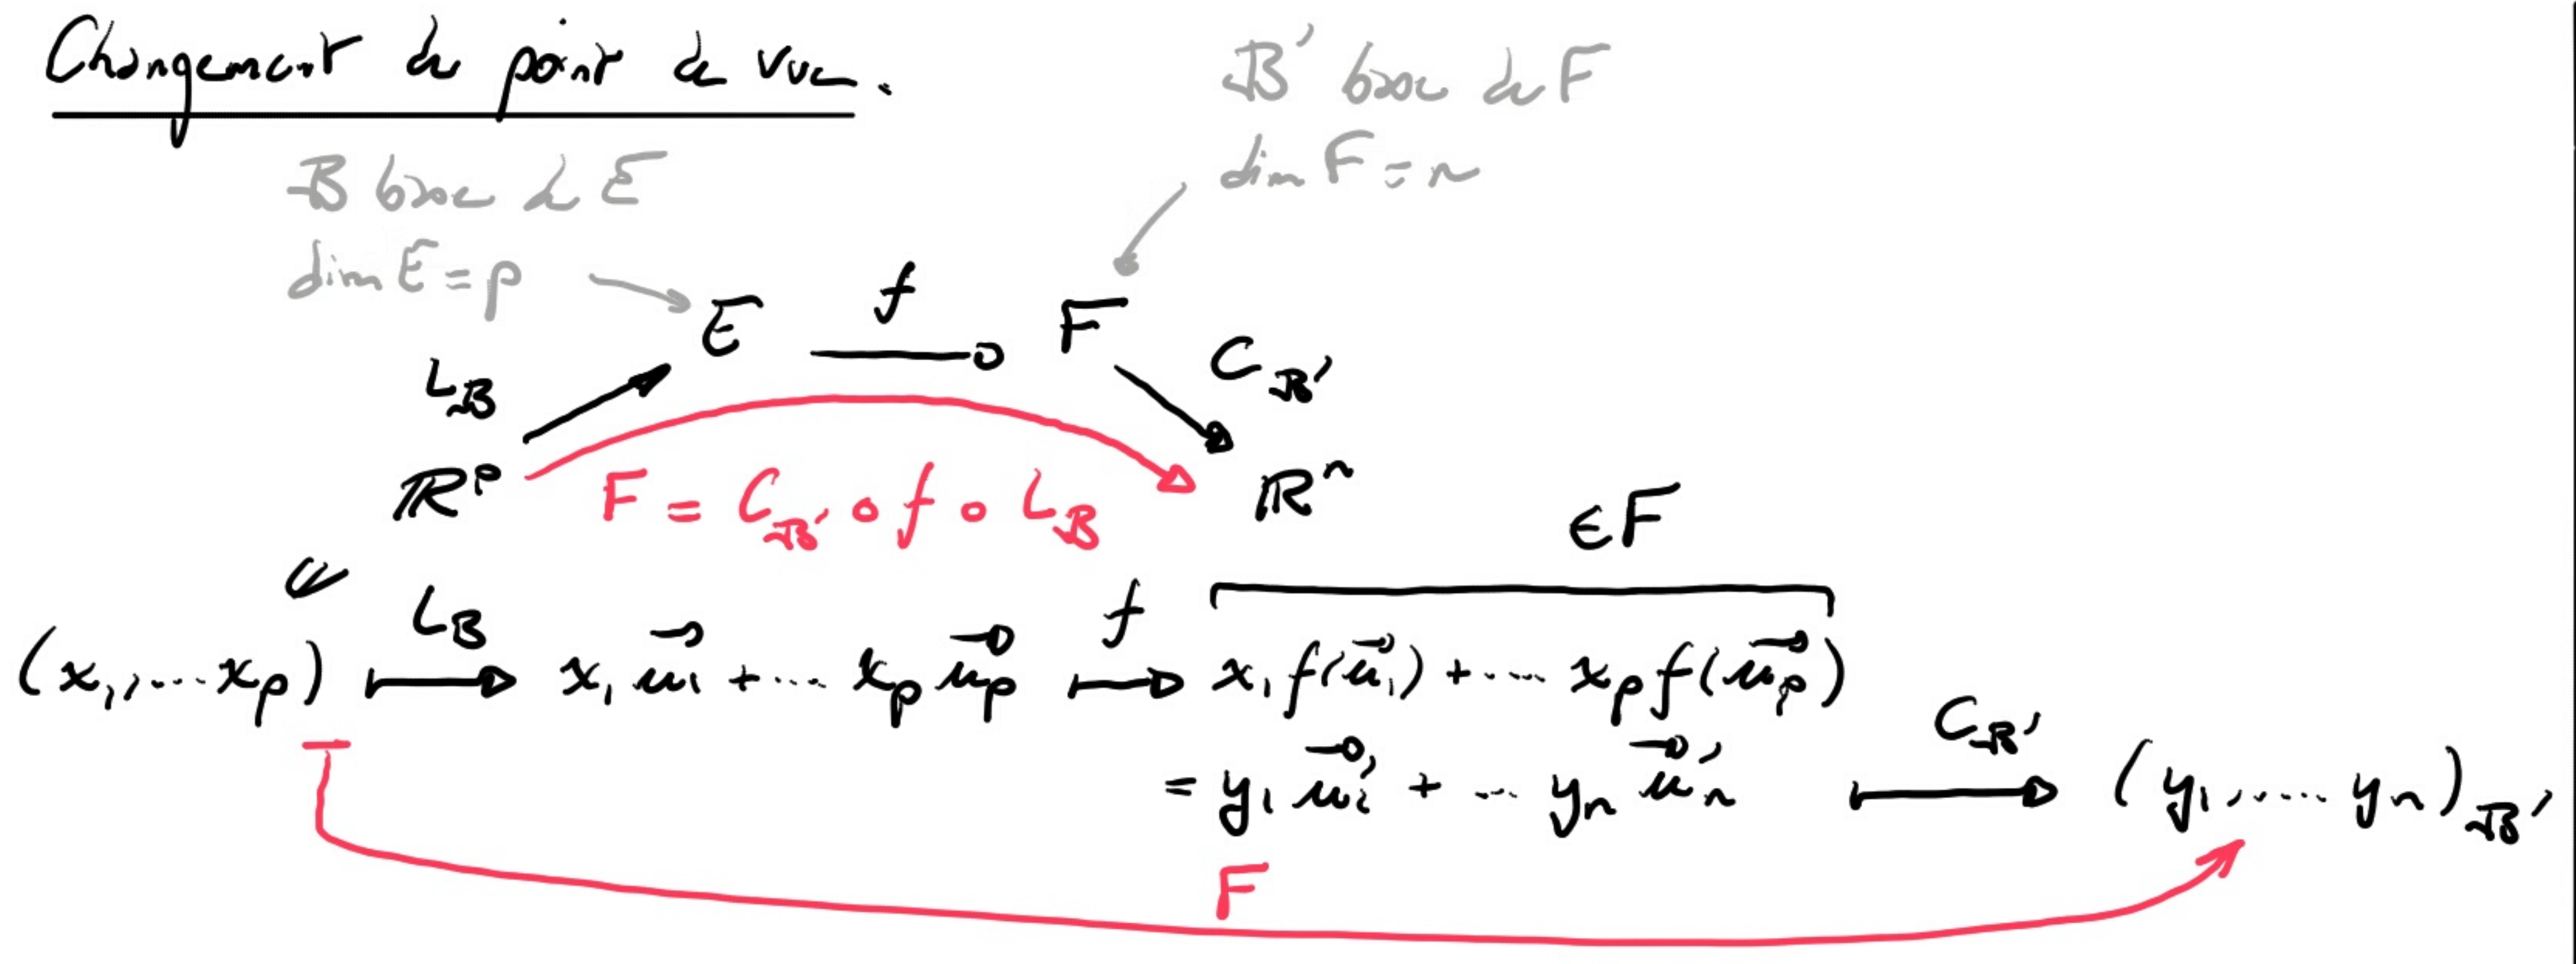 Changement de point de vue.
B' base de F
dim F = n
B base de E
dim E = p
E f F
L_B C_B'
ℝ^p F = C_B' ∘ f ∘ L_B ℝ^n
∈ F
L_B f
(x₁,... x_p) ↦ x₁ u⃗₁ + ... x_p u⃗_p ↦ x₁ f(u⃗₁) + ... x_p f(u⃗_p)
C_B'
= y₁ u⃗₁' + ... y_n u⃗_n' ↦ (y₁, ... y_n)_B'
F